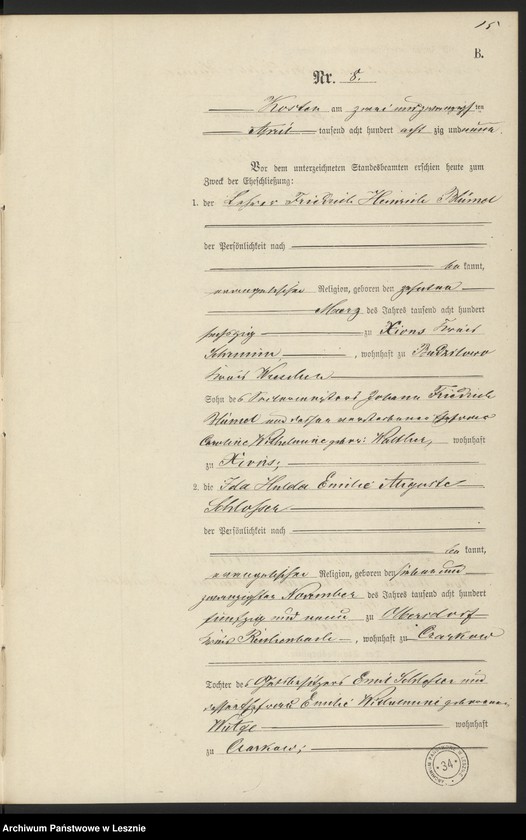 15
B.
Nr. 8.
Kosten am zwei und zwanzigsten
April tausend acht hundert acht zig und neun.
Vor dem unterzeichneten Standesbeamten erschien heute zum
Zweck der Eheschließung:
1. der Lehrer Friedrich Heinrich Blümel
der Persönlichkeit nach
be kannt,
evangelischer Religion, geboren den zehnten
März des Jahres tausend acht hundert
sechszig zu Xions Kreis
Schrimm, wohnhaft zu
Kreis Wreschen
Sohn des Johann Friedrich
Blümel und dessen verstorbener Ehefrau
Caroline Wilhelmine geb: wohnhaft
zu Xions;
2. die Ida Hulda Emilie Auguste
Schlosser
der Persönlichkeit nach
be kannt,
evangelischer Religion, geboren den sieben und
zwanzigsten November des Jahres tausend acht hundert
fünfzig und neun zu Obersdorf
Kreis Reichenbach, wohnhaft zu Czarkow
Tochter des Gutsbesitzers Emil Schlosser und
dessen Ehefrau Emilie Wilhelmine geborenen
wohnhaft
zu Czarkow;
ARCHIWUM PAŃSTWOWE W LESZNIE
34
Archiwum Państwowe w Lesznie